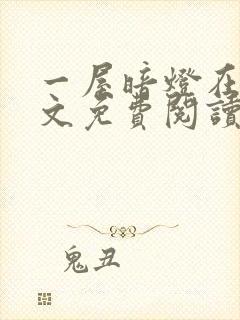 一屋暗燈在
文免費閱讀
鬼丑